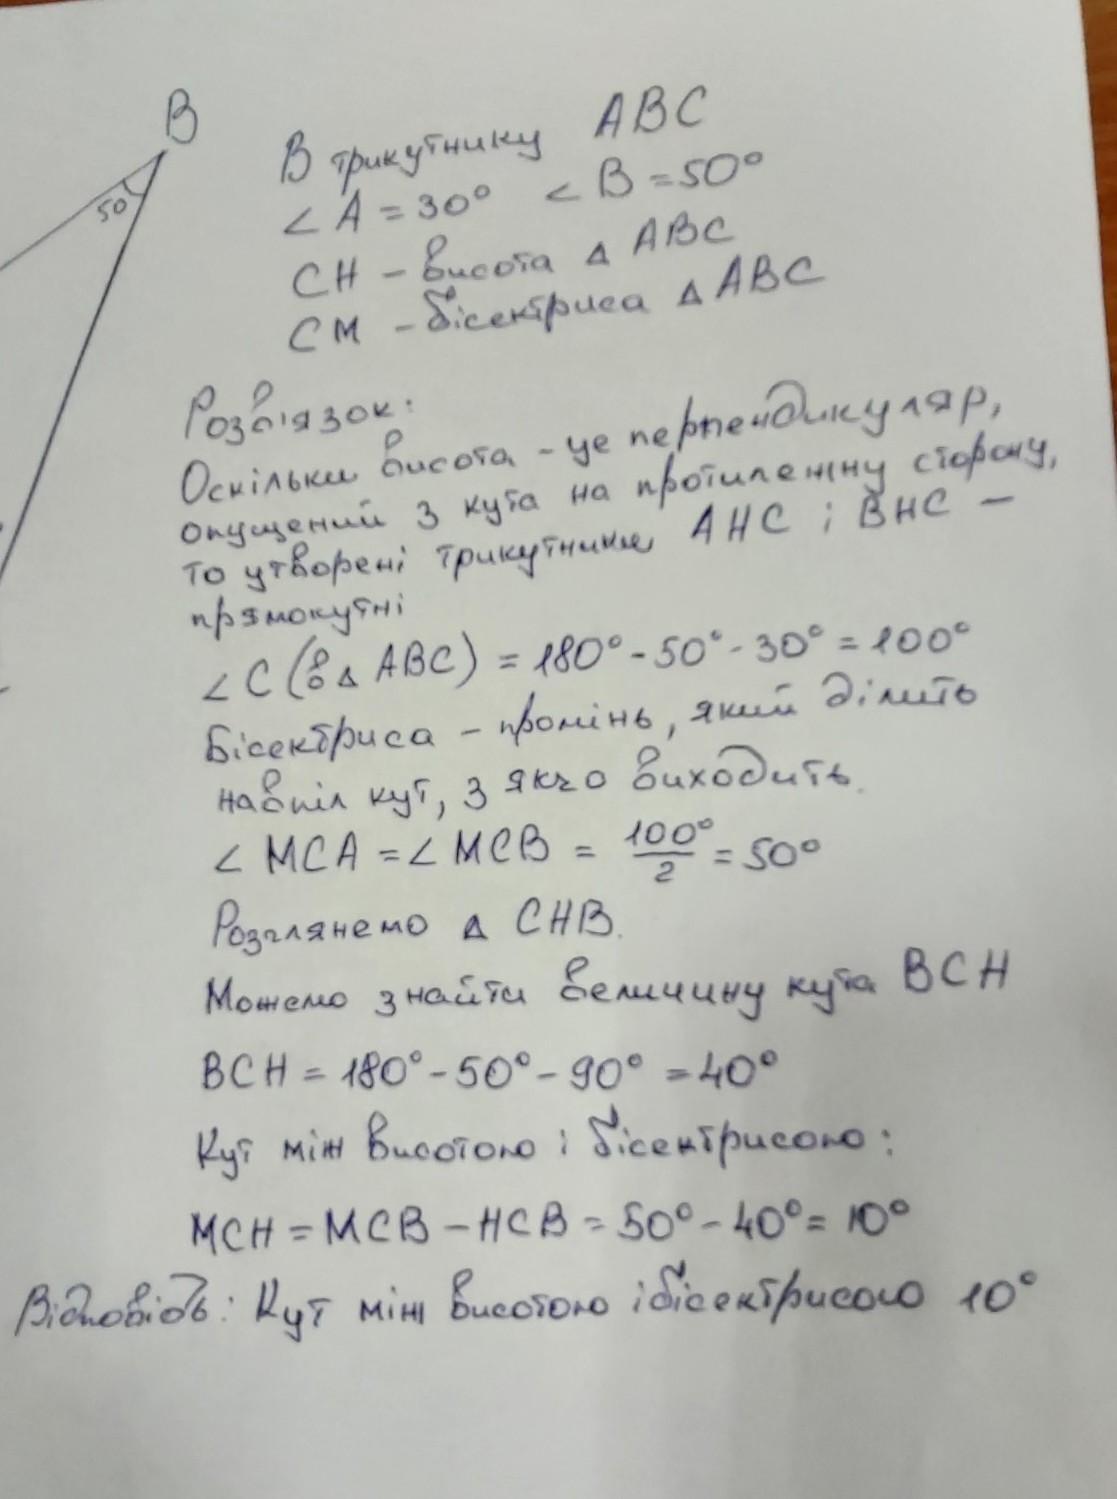 B
50
В трикутнику ABC
∠A = 30° ∠B = 50°
CH – висота Δ ABC
CM – бісектриса Δ ABC
Розв'язок:
Оскільки висота – це перпендикуляр,
опущений з кута на протилежну сторону,
то утворені трикутники AHC і BHC –
прямокутні
∠C (в Δ ABC) = 180° - 50° - 30° = 100°
Бісектриса – промінь, який ділить
навпіл кут, з якго виходить.
∠ MCA = ∠ MCB = 100°/2 = 50°
Розглянемо Δ CHB.
Можемо знайти величину кута BCH
BCH = 180° - 50° - 90° = 40°
Кут між висотою і бісектрисою:
MCH = MCB - HCB = 50° - 40° = 10°
Відповідь: Кут між висотою і бісектрисою 10°